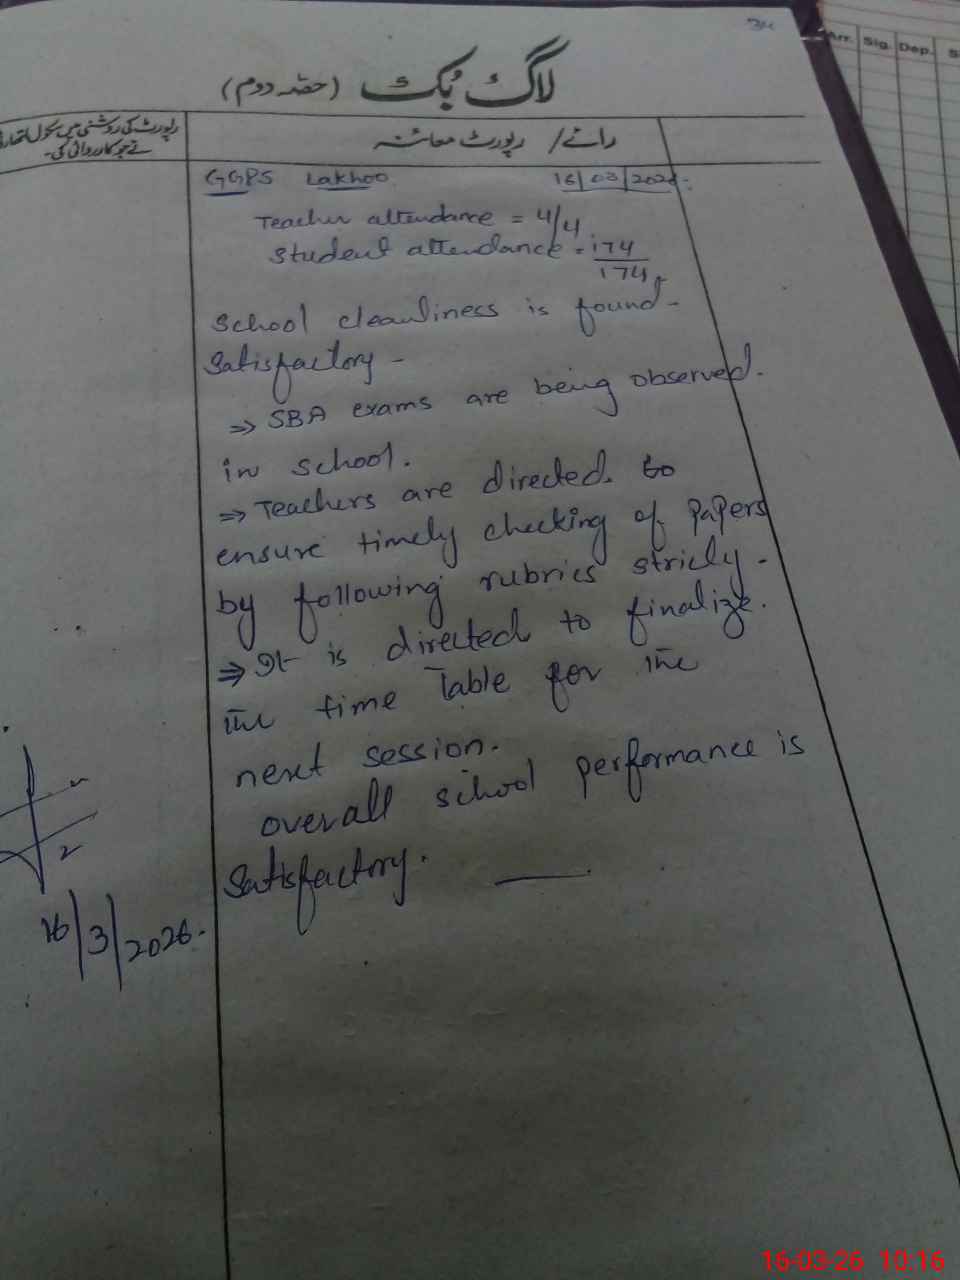 34
Arr. Sig. Dep. S
لاگ بُک (حصّہ دوم)
رائے / رپورٹ معائنہ
رپورٹ کی روشنی میں سکول اتھارٹی
نے جو کارروائی کی۔
GGPS Lakhoo 16/03/2026.
Teacher attendance = 4/4
Student attendance = 174/174
School cleanliness is found -
Satisfactory -
⇒ SBA exams are being observed.
in school.
⇒ Teachers are directed to
ensure timely checking of Papers
by following rubrics stricly -
⇒ It is directed to finalize.
the time Table for the
next session.
overall school performance is
Satisfactory.
16/3/2026.
16-03-26 10:16